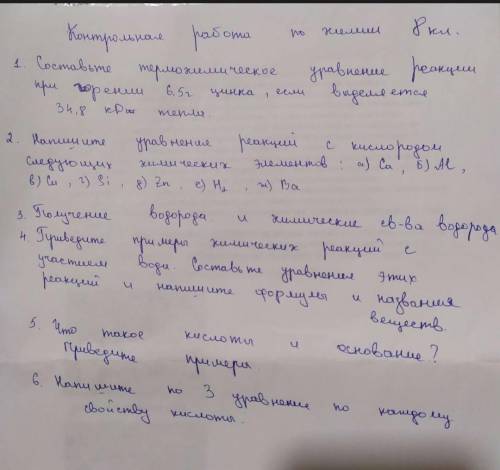 Контрольная работа по химии 8 кл.
1. Составьте термохимическое уравнение реакции
при горении 6.5г цинка, если выделяется
34,8 кДж тепла.
2. Напишите уравнения реакций с кислородом
следующих химических элементов: а) Ca, б) Al,
в) Cu, г) Si, д) Zn, е) H₂, ж) Ba
3. Получение водорода и химические св-ва водорода
4. Приведите примеры химических реакций с
участием воды. Составьте уравнения этих
реакций и напишите формулы и названия
веществ.
5. Что такое кислоты и основание?
Приведите примеры
6. Напишите по 3 уравнение по каждому
свойству кислоты.